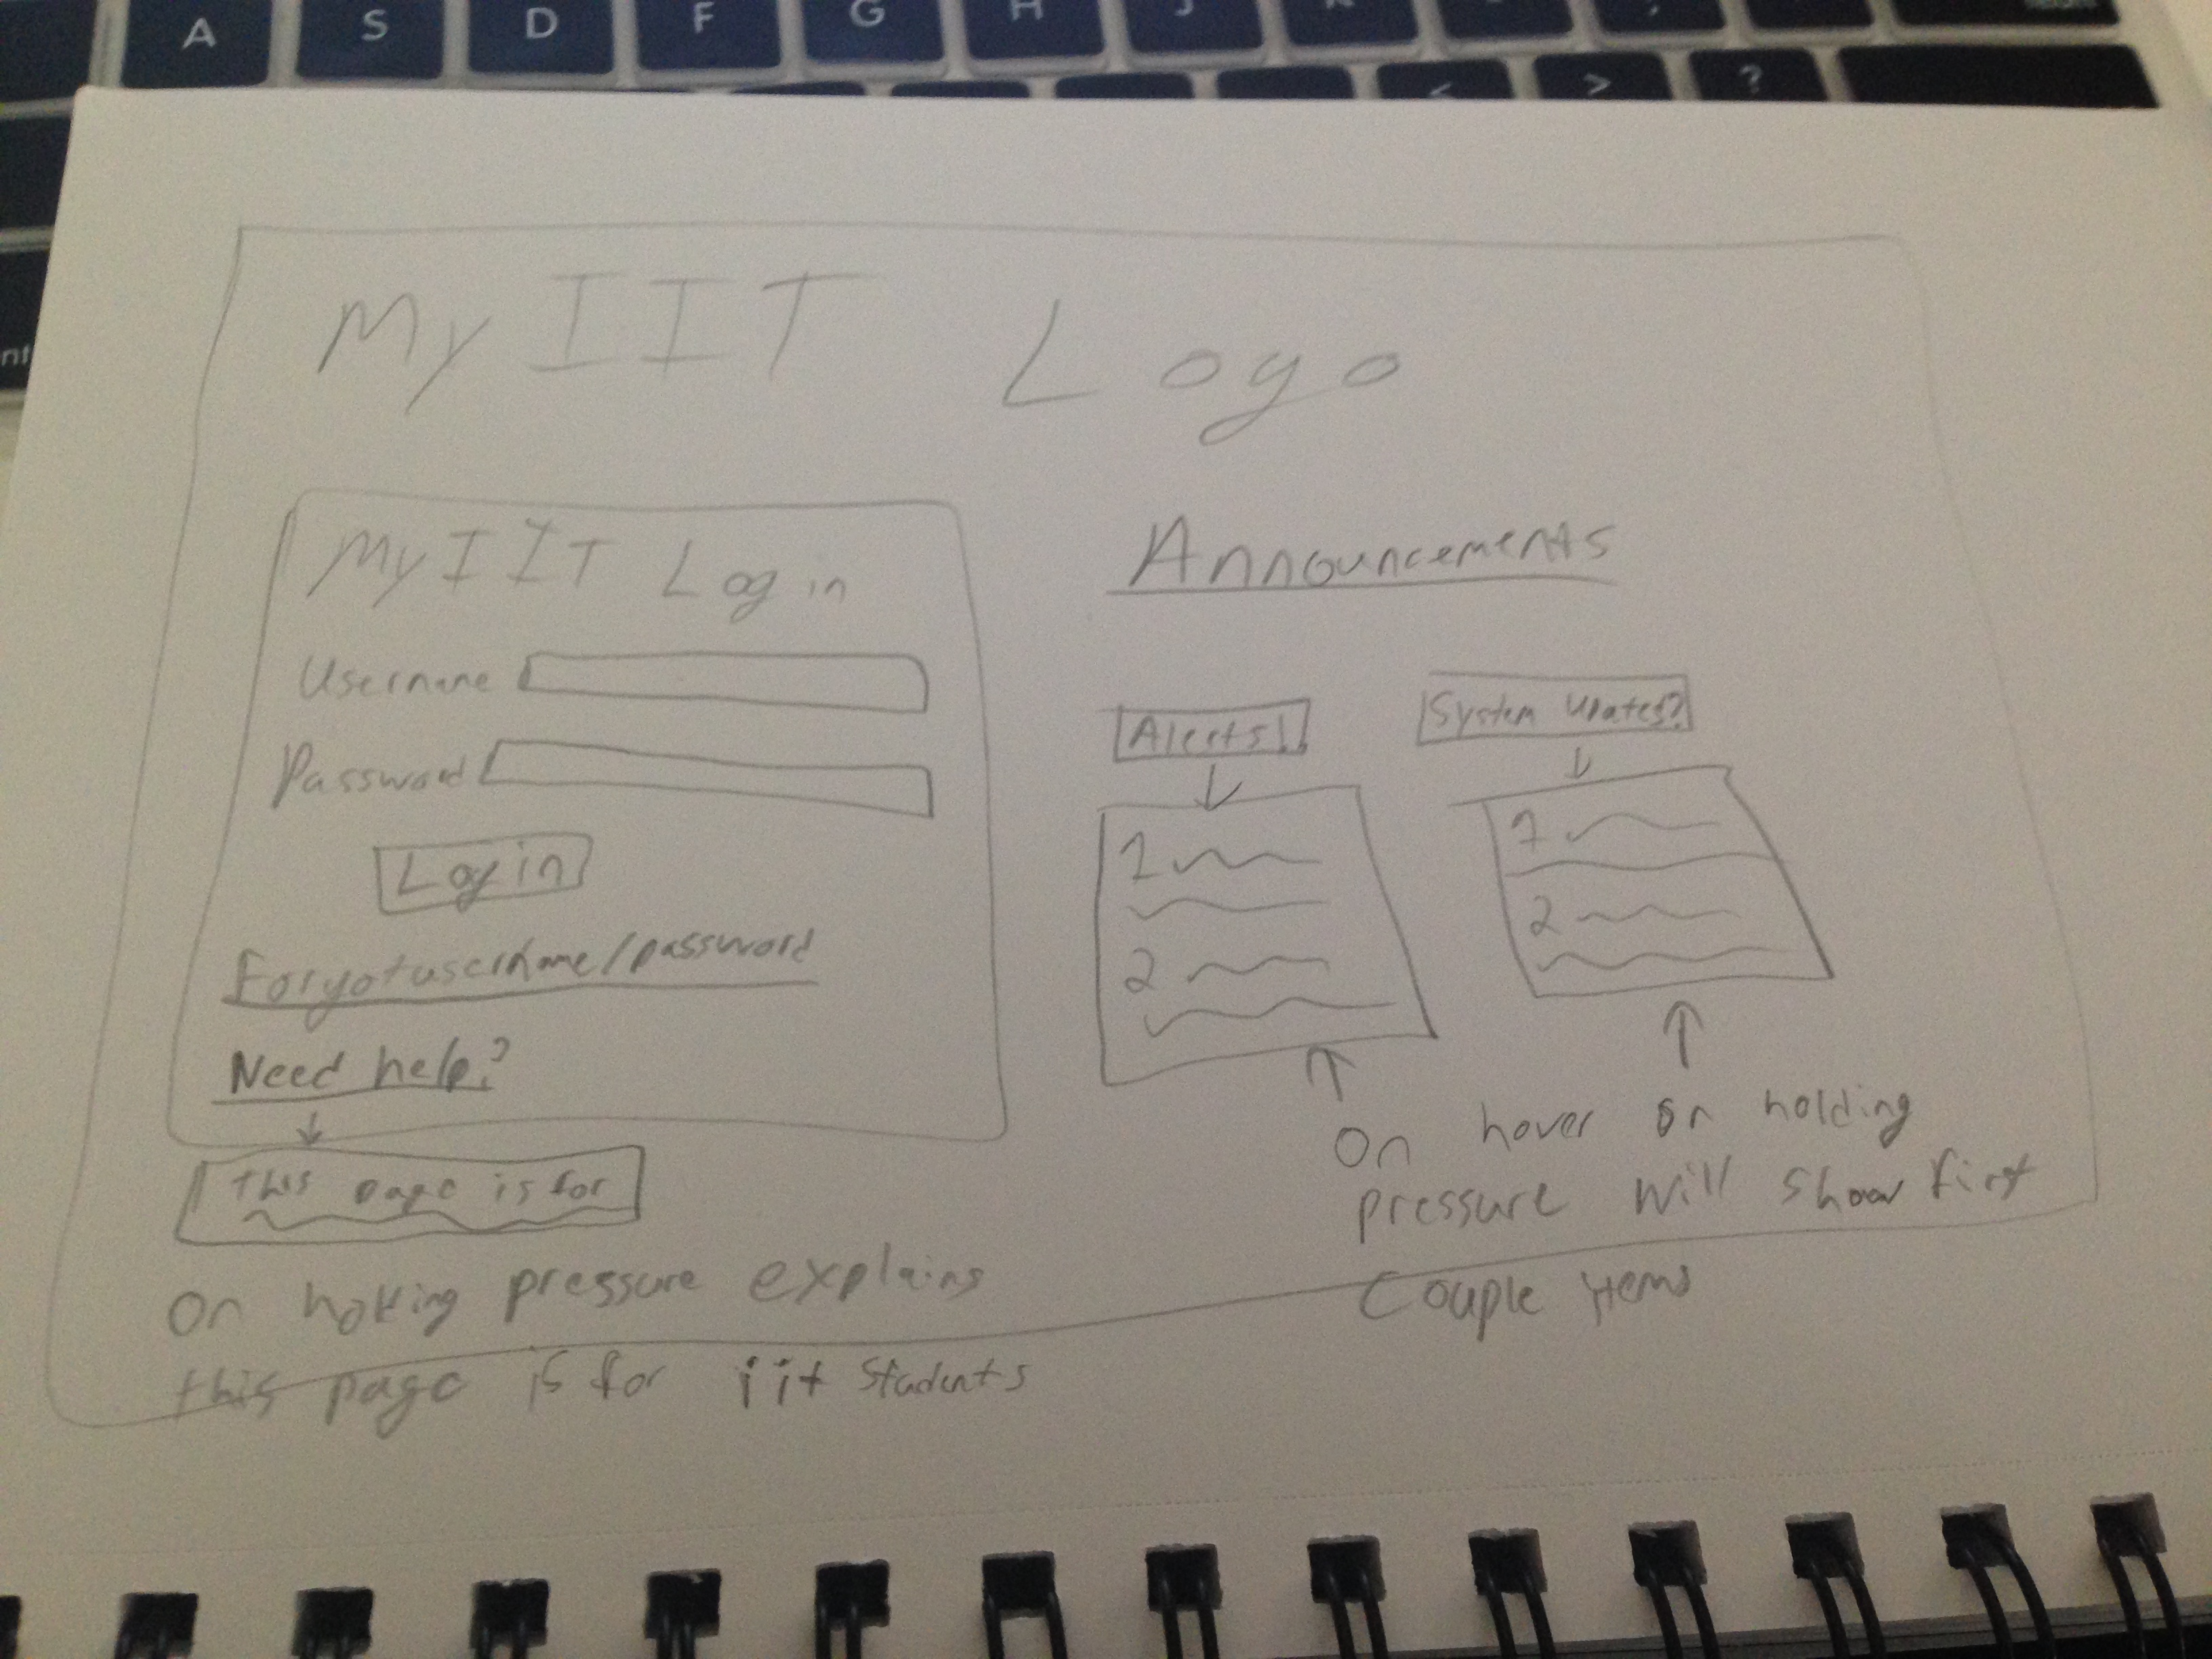 A S D F G H J K
< > ?
My IIT Logo
My IIT Log in
Username
Password
Log in
Forgot username/password
Need help?
this page is for
On holding pressure explains
this page is for iit students
Announcements
Alerts!!
System Upates?
1
2
1
2
On hover or on holding
pressure will show first
couple items